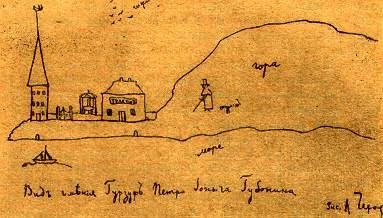 гора
море
Видъ имѣнія Гурзуфъ Петра Іоныча Губонина
рис. А. Чехов